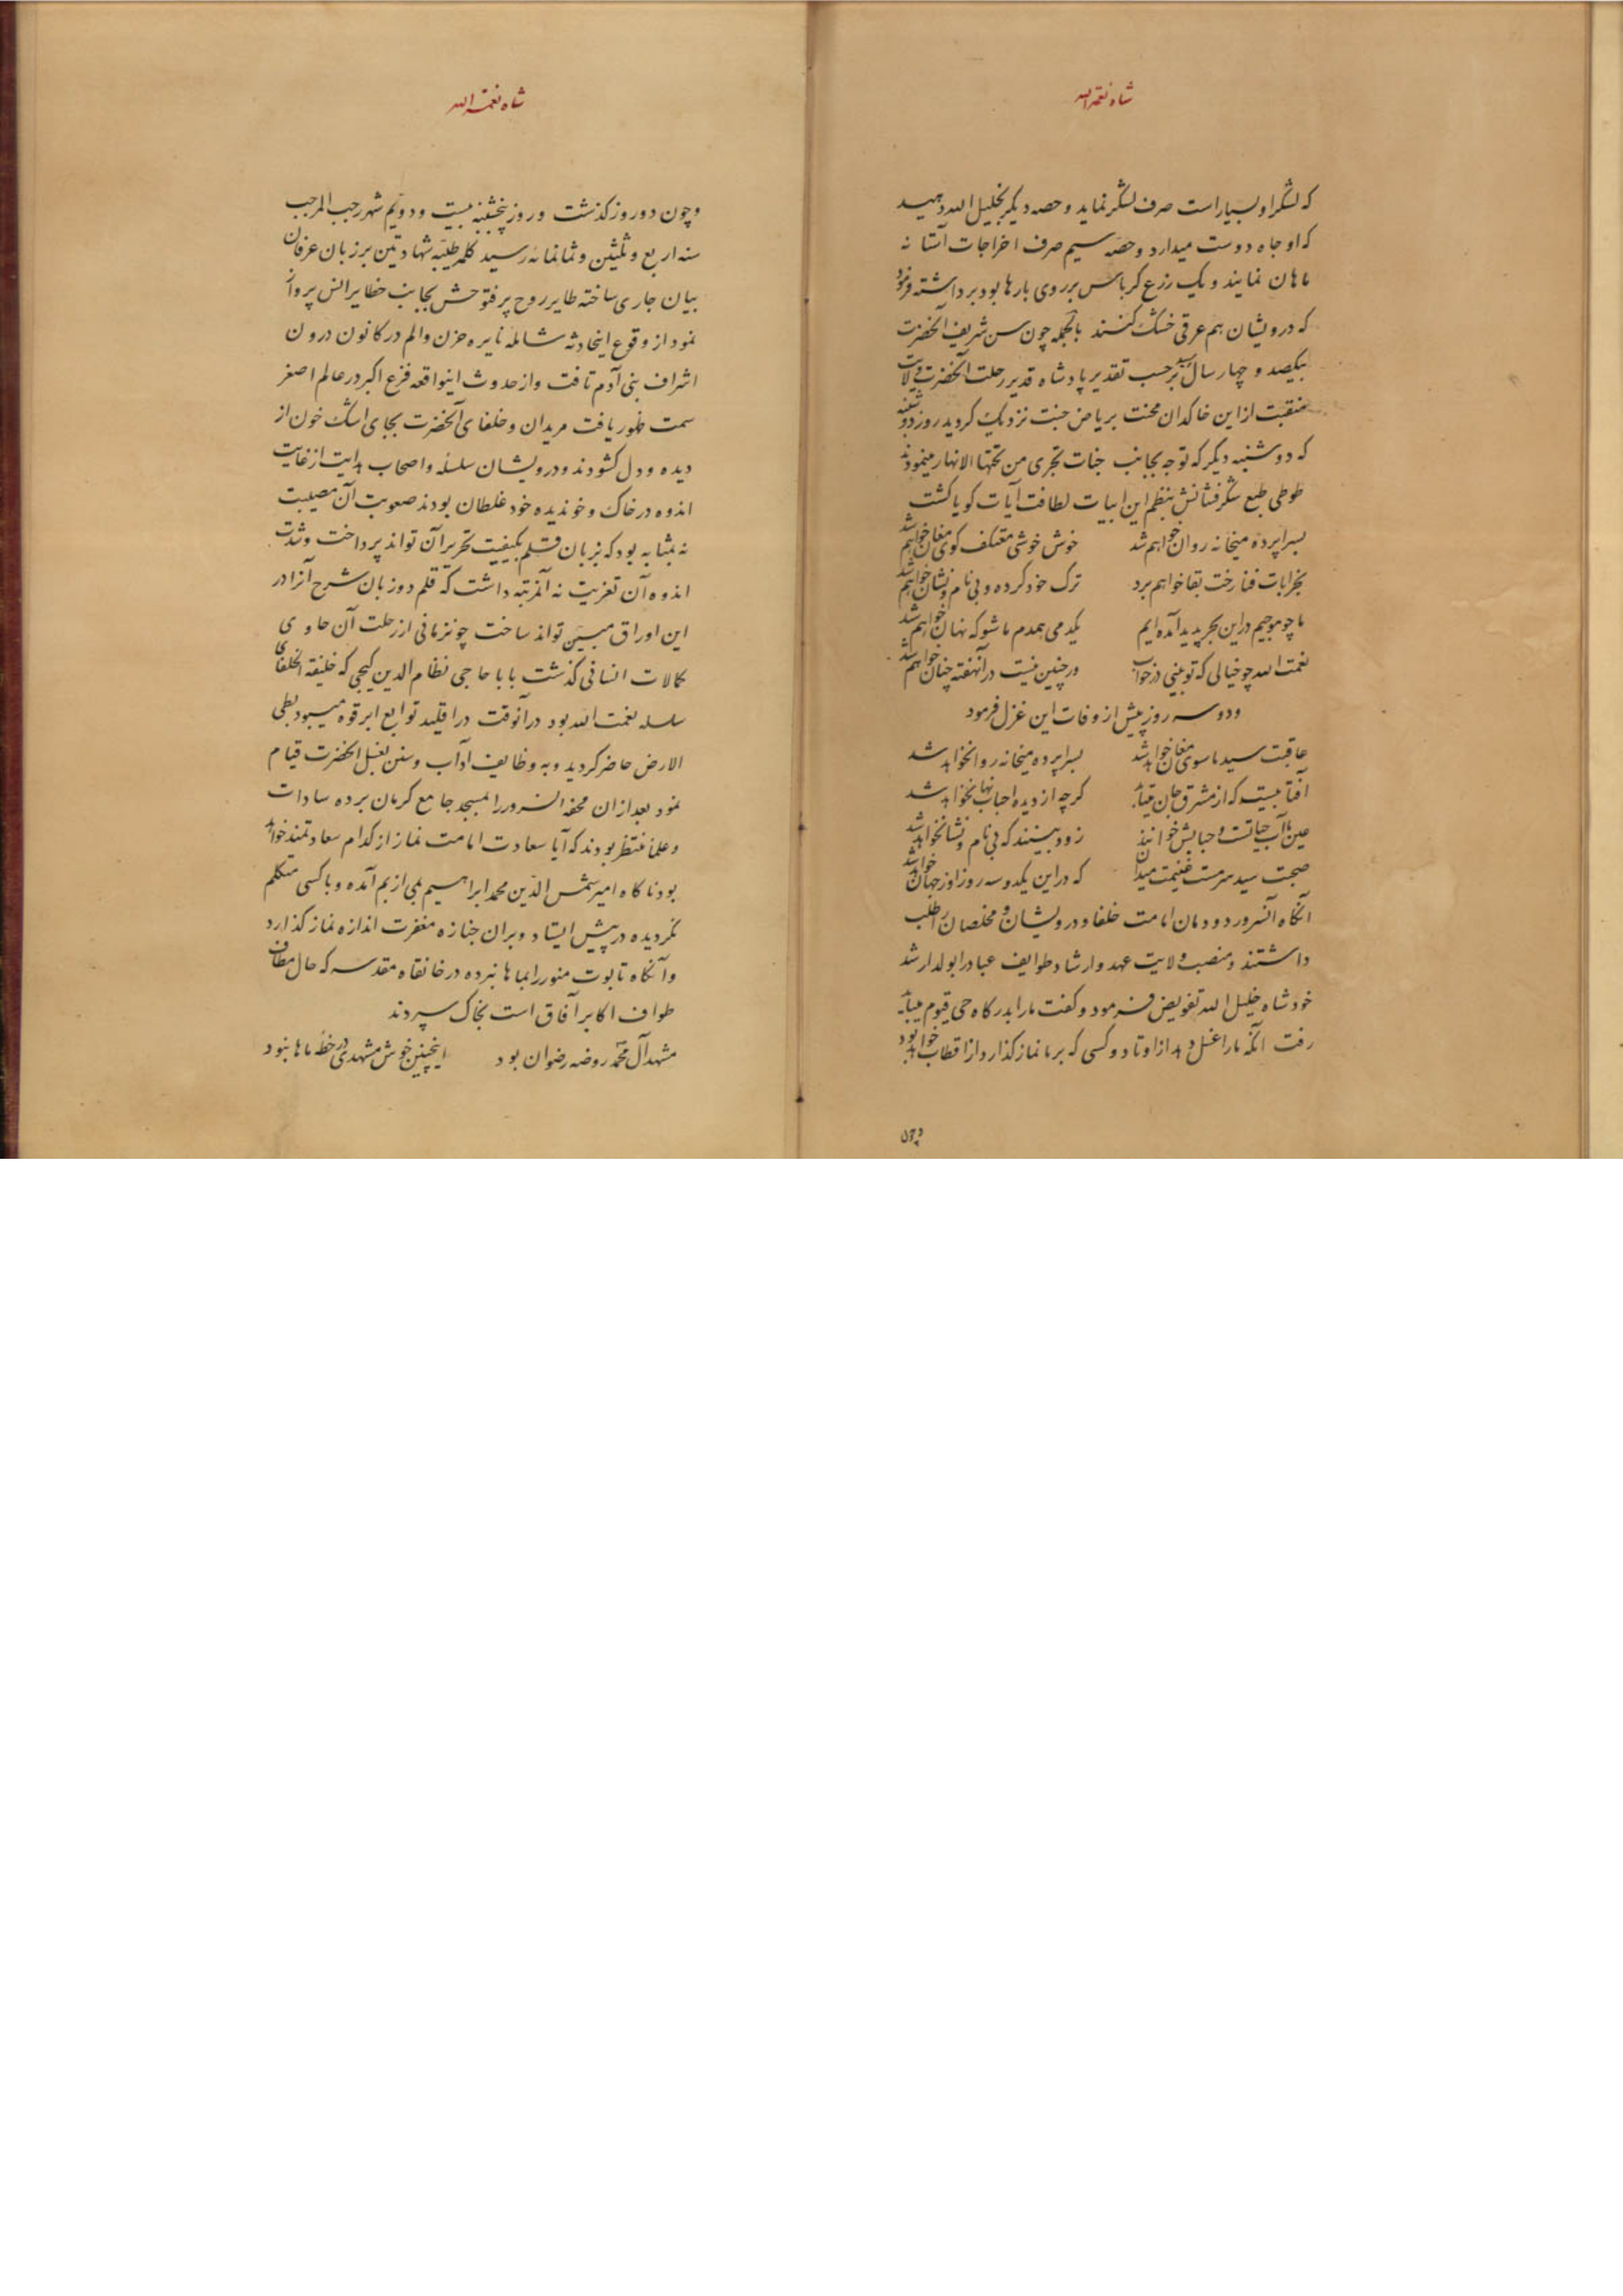 شاه نعمة الله
که لشکر او بسیار است صرف لشکر نماید و حصه دیگر بخلیل الله دهید
که او جاه دوست میدارد و حصه سیم صرف اخراجات آستا نه
ماهان نمایند و یک زرع کرباس بر روی بارها بود برداشته فرمود
که درویشان هم عرقی خشک کنند بالجمله چون سن شریف آنحضرت
بیکصد و چهار سال رسید برحسب تقدیر پادشاه قدیر رحلت آنحضرت ولایت
منقبت از این خاکدان محنت بریاض جنت نزدیک کردید روز دوشنبه
که دوشنبه دیگر که توجه بجانب جنات تجری من تحتها الانهار مینمودند
طوطی طبع شکرفشانش بنظم این ابیات لطافت آیات کویا کشت
بسراپرده میخانه روان خواهم شد خوش خوشی معتکف کوی مغان خواهم شد
بخرابات فنا رخت بقا خواهم برد ترک خود کرده و بی نام و نشان خواهم شد
ما چو موجیم در این بحر پدید آمده ایم یکدمی همدم ما شو که نهان خواهم شد
نعمت الله چو خیالی که تو بینی در خواب ور چنین نیست در آنهفته چنان خواهم شد
و دو سه روز پیش از وفات این غزل فرمود
عاقبت سید ما سوی مغان خواهد شد بسراپرده میخانه روانخواهد شد
آفتابیست که از مشرق جان میتابد کرچه از دیده احباب نهانخواهد شد
عین ما آب حیاتست و حبابش خوانند زود بینند که بی نام و نشانخواهد شد
صحبت سید سرمست غنیمت میدان که در این یکدو سه روز او ز جهان خواهد شد
آنکاه آنسرور دودمان امامت خلفا و درویشان و مخلصان را طلب
داشتند و منصب ولایت عهد و ارشاد طوایف عباد را بولد ارشد
خود شاه خلیل الله تفویض فرمود و کفت ما را بدرکاه حی قیوم میباید
رفت آنکه ما را غسل دهد از اوتاد و کسی که بر ما نماز کذارد از اقطاب خواهد بود
و چون
شاه نعمة الله
و چون دو روز کذشت و روز پنجشنبه بیست و دویم شهر رجب المرجب
سنه اربع و ثلثین و ثمانمائه رسید کلمه طیبه شهادتین بر زبان عرفان
بیان جاری ساخته طایر روح پرفتوحش بجانب حظایر انس پرواز
نمود از وقوع اینحادثه شامله نایره حزن و الم در کانون درون
اشراف بنی آدم تافت و از حدوث اینواقعه فزع اکبر در عالم اصغر
سمت ظهور یافت مریدان و خلفای آنحضرت بجای اشک خون از
دیده و دل کشودند و درویشان سلسله و اصحاب هدایت از غایت
اندوه در خاک و خوندیده خود غلطان بودند صعوبت آن مصیبت
نه بمثابه بود که بزبان قلم بکیفیت تحریر آن تواند پرداخت و شدت
اندوه آن تعزیت نه آنمرتبه داشت که قلم دو زبان شرح آنرا در
این اوراق مبین تواند ساخت چونزمانی از رحلت آن حاوی
کمالات انسانی کذشت بابا حاجی نظام الدین کیجی که خلیفة الخلفای
سلسله نعمت الله بود در آنوقت در اقلید توابع ابرقوه میبود بطی
الارض حاضر کردید و به وظایف آداب و سنن بغسل آنحضرت قیام
نمود بعد از ان محفه آنسرور را بمسجد جامع کرمان برده سادات
و علما منتظر بودند که آیا سعادت امامت نماز از کدام سعادتمند خواهد
بود ناکاه امیر شمس الدین محمد ابراهیم بمی از بم آمده و با کسی متکلم
نکردیده در پیش ایستاد و بران جنازه مغفرت اندازه نماز کذارد
و آنکاه تابوت منور را بماهان برده در خانقاه مقدسه که حال مطاف
طواف اکابر آفاق است بخاک سپردند
مشهد آل محمد روضه رضوان بود اینچنین خوش مشهدی در خطه ماهان بود